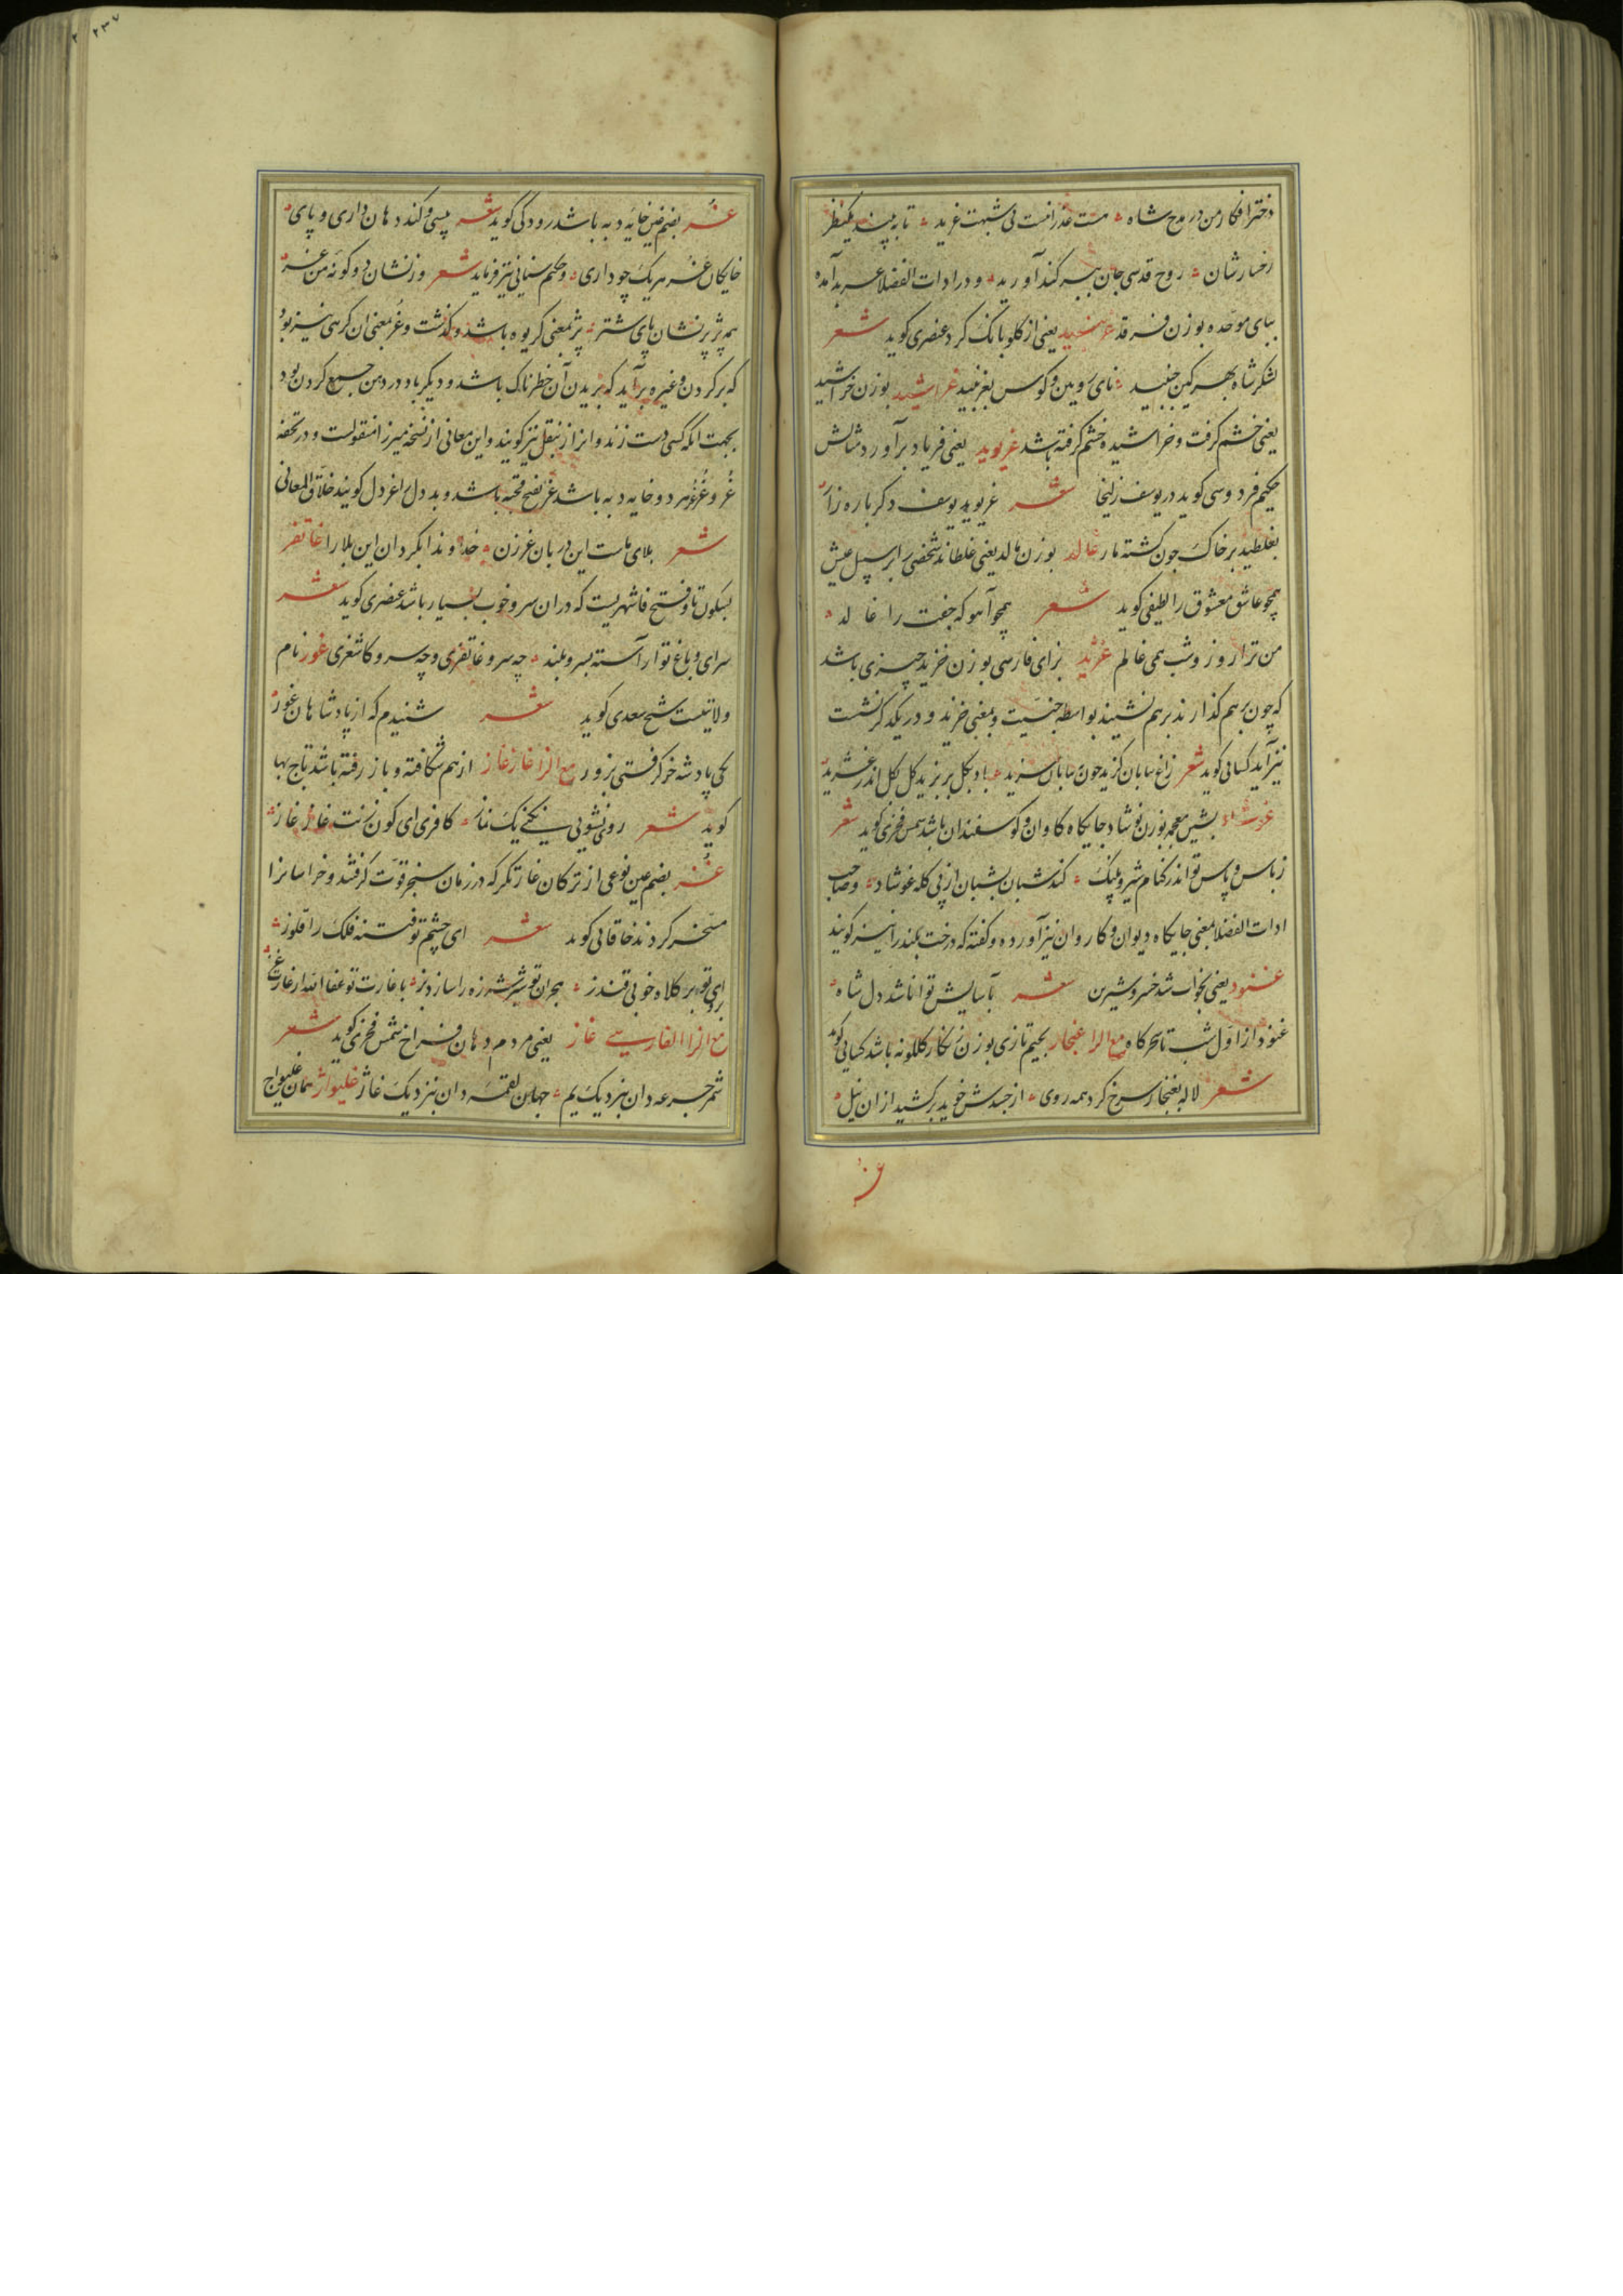 دختر افکار من در مدح شاه مست عذرائست بی شبهت غرید تا به بیند یکنظر
رخسارشان روح قدسی جان ببر کند آورید و در ادات الفضلا عربد آمده
ببای موحده بوزن فرقد غرنبید یعنی از کلو بانک کرد عنصری کوید شعر
لشکر شاه بهر کین جنبید نای رویین و کوس بغرنبید غراشید بوزن خراشید
یعنی خشم کرفت و خراشیده خشم کرفته باشد غریوید یعنی فریاد برآورد مثالش
حکیم فردوسی کوید در یوسف زلیخا شعر غریوید یوسف دکرباره زار
بغلطید بر خاک چون کشته مار غالد بوزن مالد یعنی غلطاند شخصی را بر سبیل عیش
همچو عاشق معشوق را لطیفی کوید شعر همچو آهو که جفت را غالد
من ترا روز و شب همی غالم غژید بزای فارسی بوزن خزید چیزی باشد
که چون بر هم کذارند بر هم نشیند بواسطه جنسیت و بمعنی خزید و در یکدکر نشست
نیز آید کسائی کوید شعر زاغ بیابان کزید چون بیابان سزید باد بکل بر بزید کل بکل اندر غژید
غوشاد بشین معجمه بوزن نوشاد جایکاه کاوان و کوسفندان باشد شمس فخری کوید شعر
ز باس و پاس تو اندر کنام شیر و پلنک کند شبان بشبان از پی کله غوشاد و صاحب
ادات الفضلا بمعنی جایکاه دیوان و کاروان نیز آورده و کفته که درخت بلند را نیز کویند
غنود یعنی بخواب شد خسرو شیرین شعر بآسایش توانا شد دل شاه
غنود از اول شب تا سحرکاه مع الرا غنجار بجیم تازی بوزن زنکار کلکونه باشد کسائی کوید
شعر لاله بغنجار سرخ کرد همه روی از حسدش خوید برکشید از ان نیل
غر
غر بضم غین خایه دبه باشد رودکی کوید شعر پیسی و کند دهان داری و پای
خایکان غر هر یک چو داری و حکیم سنایی نیز فرماید شعر وز نشان دو کونه من غر
همه پژ پر نشان پای شتر پژ بمعنی کریوه باشد و کذشت و غر بمعنی ان کرهی نیز بود
که بر کردن و غیره برآید که بریدن آن خطرناک باشد و دیکر باد در دهن جمع کردن بود
بجهت انکه کسی دست زند و انرا زنبغل نیز کویند و این معانی از نسخه میرزا منقولست و در تحفه
غر و غرغر مرد و خایه دبه باشد غر بفتح قحبه باشد و بددل را غر دل کویند خلاق المعانی
شعر بلای ماست این دربان غرزن خداوندا بکردان این بلا را غاتفر
بسکون تا و فتح فا شهریست که دران سرو خوب بسیار باشد عنصری کوید شعر
سرای و باغ تو آراسته بسرو بلند چه سرو غاتفری و چه سرو کاشغری غور نام
ولایتیست شیخ سعدی کوید شعر شنیدم که از پادشاهان غور
یکی پادشه خر کرفتی بزور مع الزا غاز غاز از هم شکافته و باز رفته باشد تاج بها
کوید شعر روی نشویی نکنی یک نماز کافری ای کون زنت غاز غاز
غز بضم عین نوعی از ترکان غارتکر که در زمان سنجر قوت کرفتند و خراسان را
مسخر کردند خاقانی کوید شعر ای چشم تو فتنه فلک را قلوز
ای تو بر کلاه خوبی قندز هجران تو شرشره زه را سازد بز با غارت تو عفا الله از غارت غز
مع الزا الفارسی غاژ یعنی مردم دهان فراخ شمس فخری کوید شعر
شمر جرعه دان بنزدیک یم جهان لقمه دان بنزدیک غاژ غلیواژ همان غلیواج